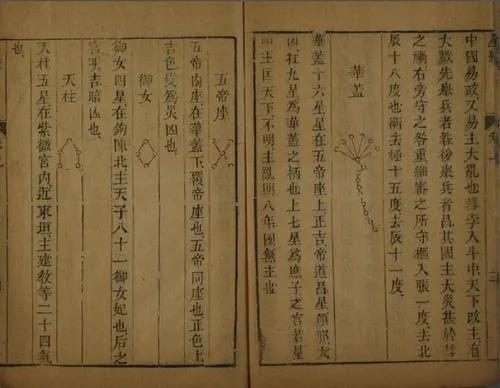 星經
中國易政又易主大亂也孛入斗中天下改主有
大戮先舉兵者咎後舉兵者昌其國主大災甚於彗
之禍右旁守之咎重細審之所守樞入張一度去北
辰十八度也衡去極十五度去辰十一度
華蓋
華蓋十六星在五帝座上正吉帝道昌星傾邪大
凶扛九星為華蓋之柄也上七星為庶子之官若星
明主匡天下不明主亂期八年國無主也
五帝座
五帝內座在華蓋下覆帝座也五帝同座也正色上
吉色變為災凶也
御女
御女四星在鉤陳北主天子八十一御女妃也后之
官明吉暗凶也
天柱
天柱五星在紫微宮內近東垣主建教等二十四氣
也